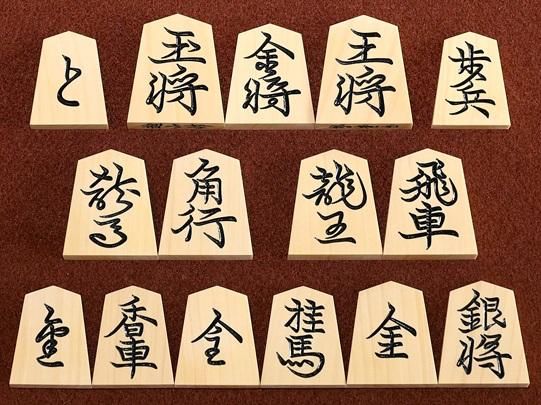 と 玉将 金将 王将 歩兵
龍馬 角行 龍王 飛車
杏 香車 圭 桂馬 全 銀将